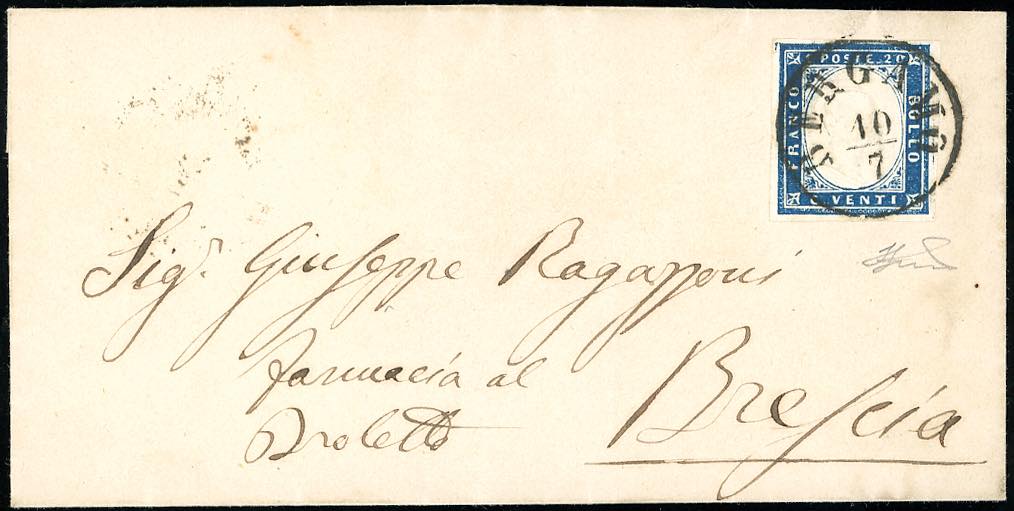 C. POSTE. 20
FRANCO
BOLLO
C. VENTI
BERGAMO
10
7
Sigr. Giuseppe Ragazzoni
farmacia al
Broletto
Brescia